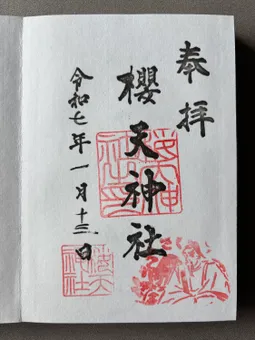 奉拝
櫻天神社
令和七年一月十三日